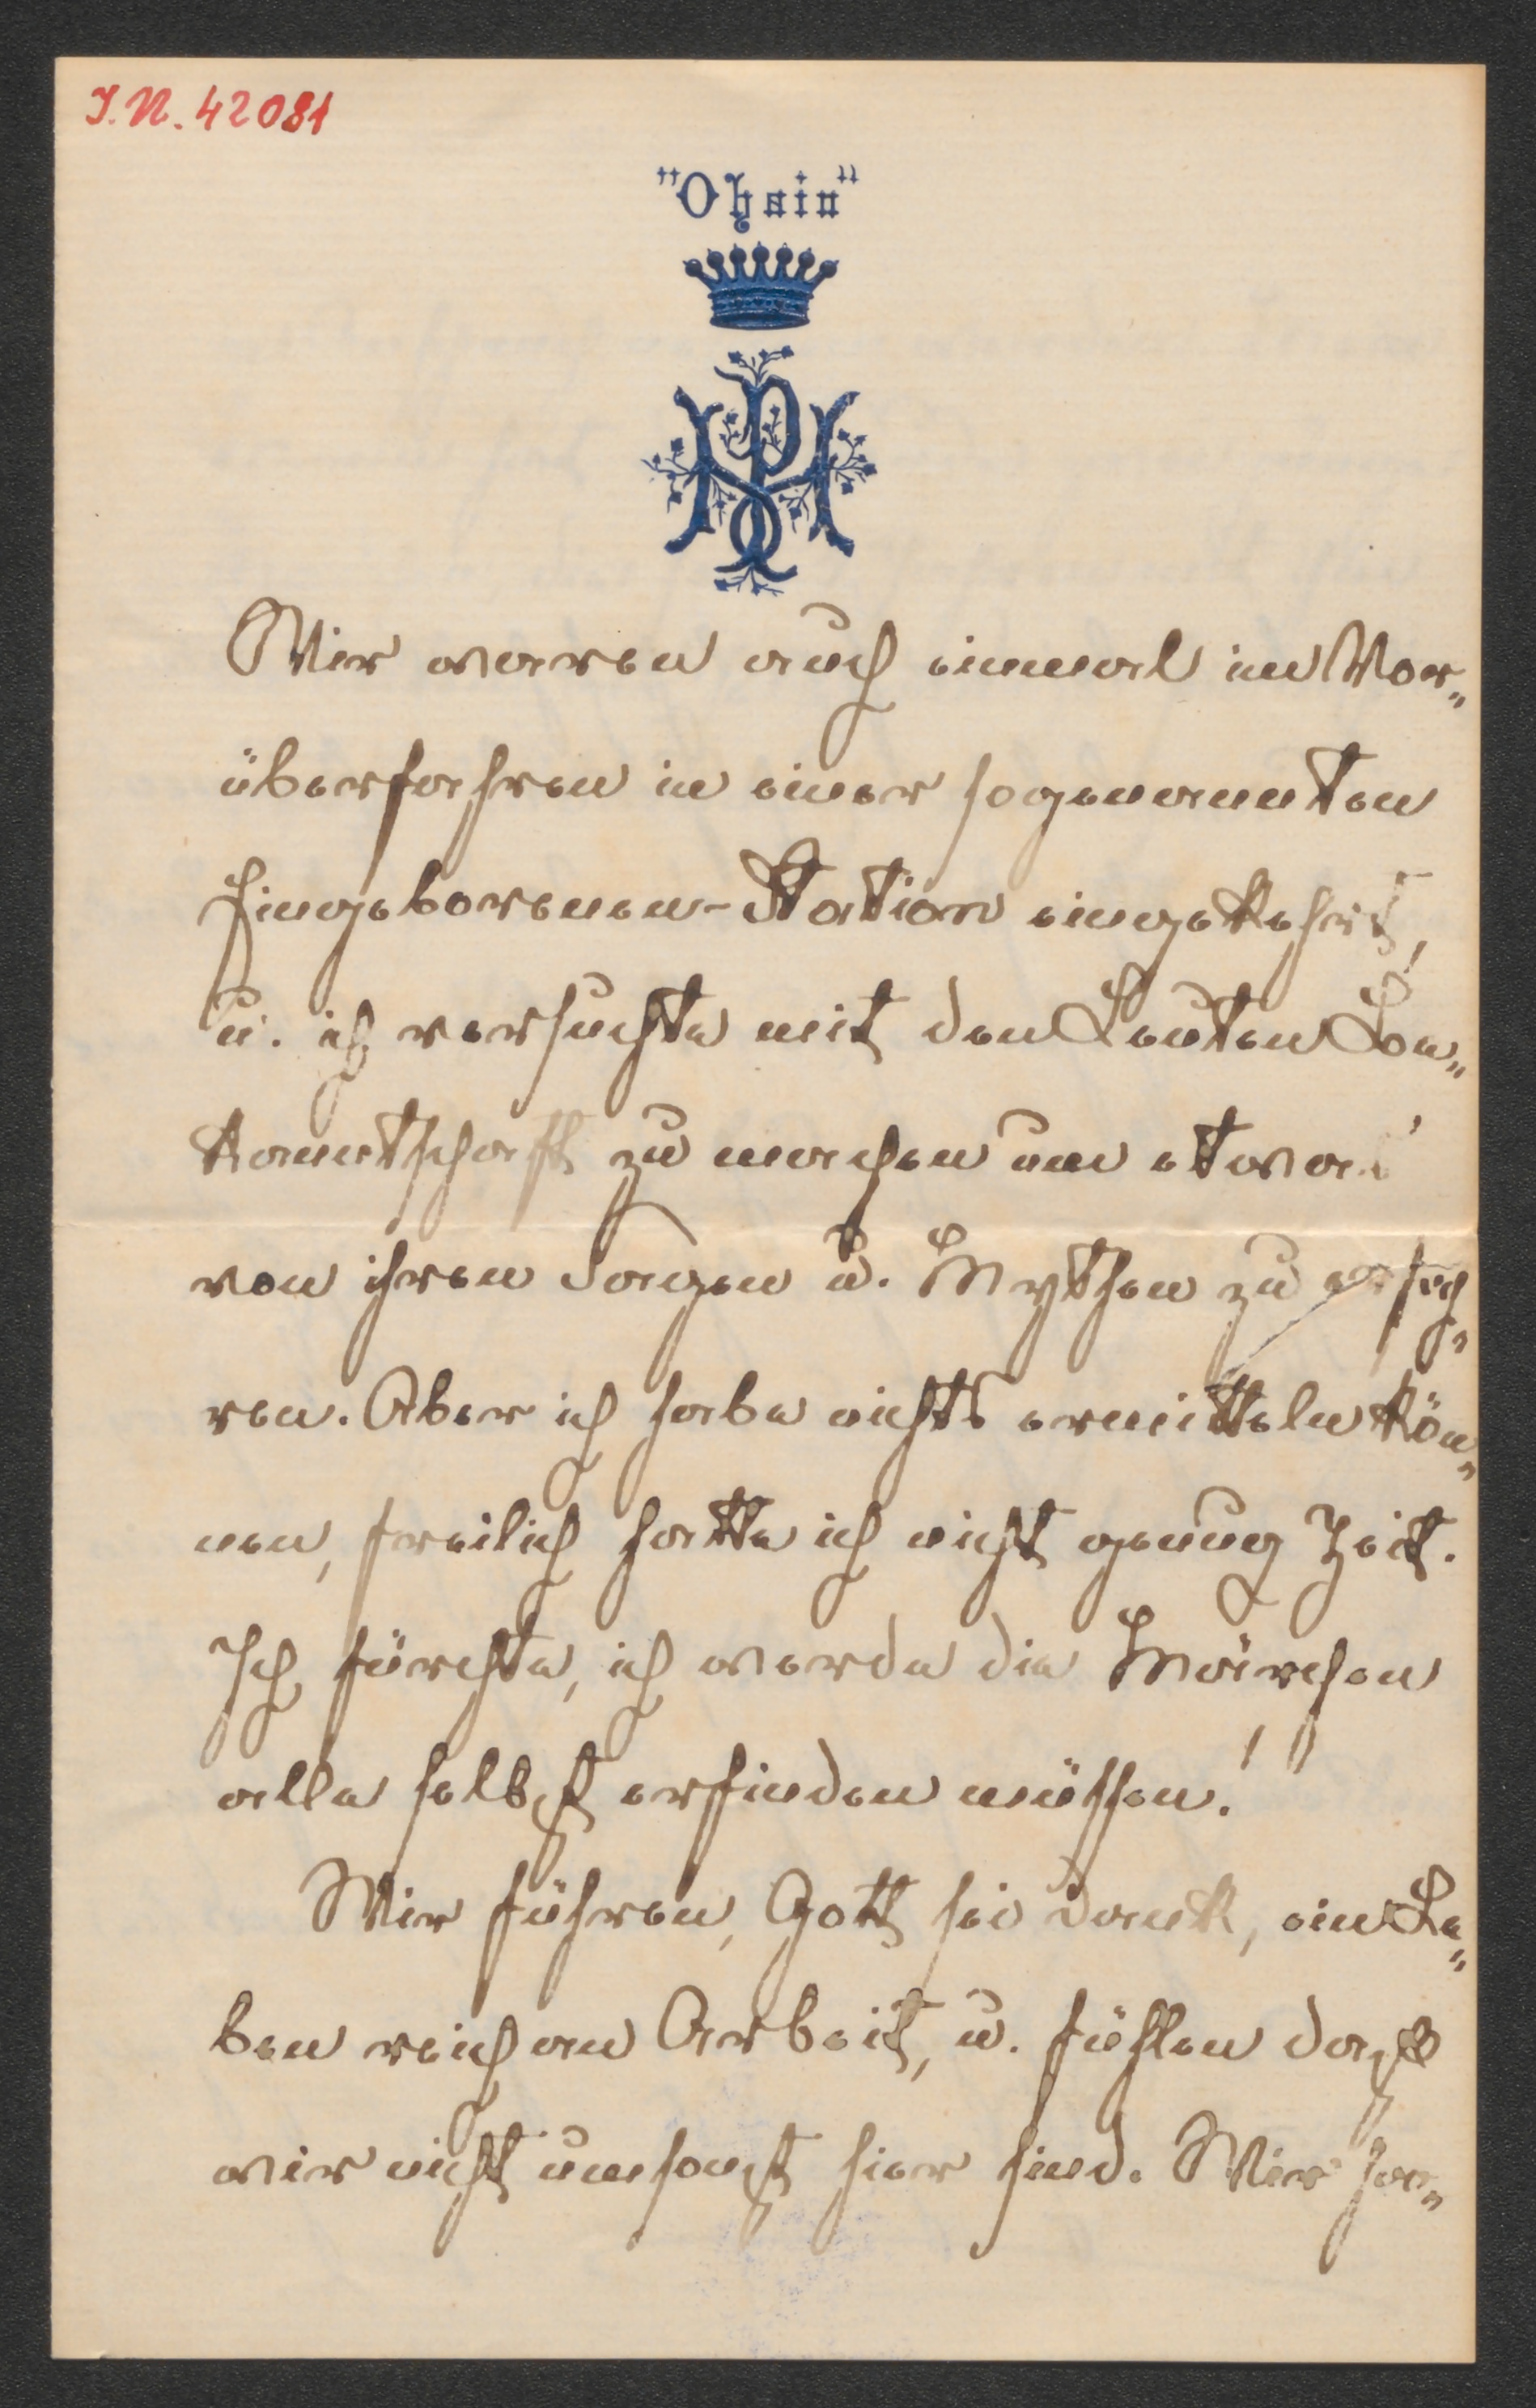 J.N. 42081
"Ohain"
Wir waren auch einmal im Vor„
überfahren in einer sogenannten
Eingeborenen-Station eingekehrt,
u. ich versuchte mit den Leuten Be„
kanntschaft zu machen um etwas
von ihren Sagen u. Mythen zu erfah„
ren. Aber ich habe nichts ermitteln kön„
nen, freilich hatte ich nicht genug Zeit.
Ich fürchte, ich werde die Märchen
alle selbst erfinden müssen!
Wir führen, Gott sei Dank, ein Le„
ben reich an Arbeit, u. fühlen dasß
wir nicht umsonst hier sind. Wir ha„